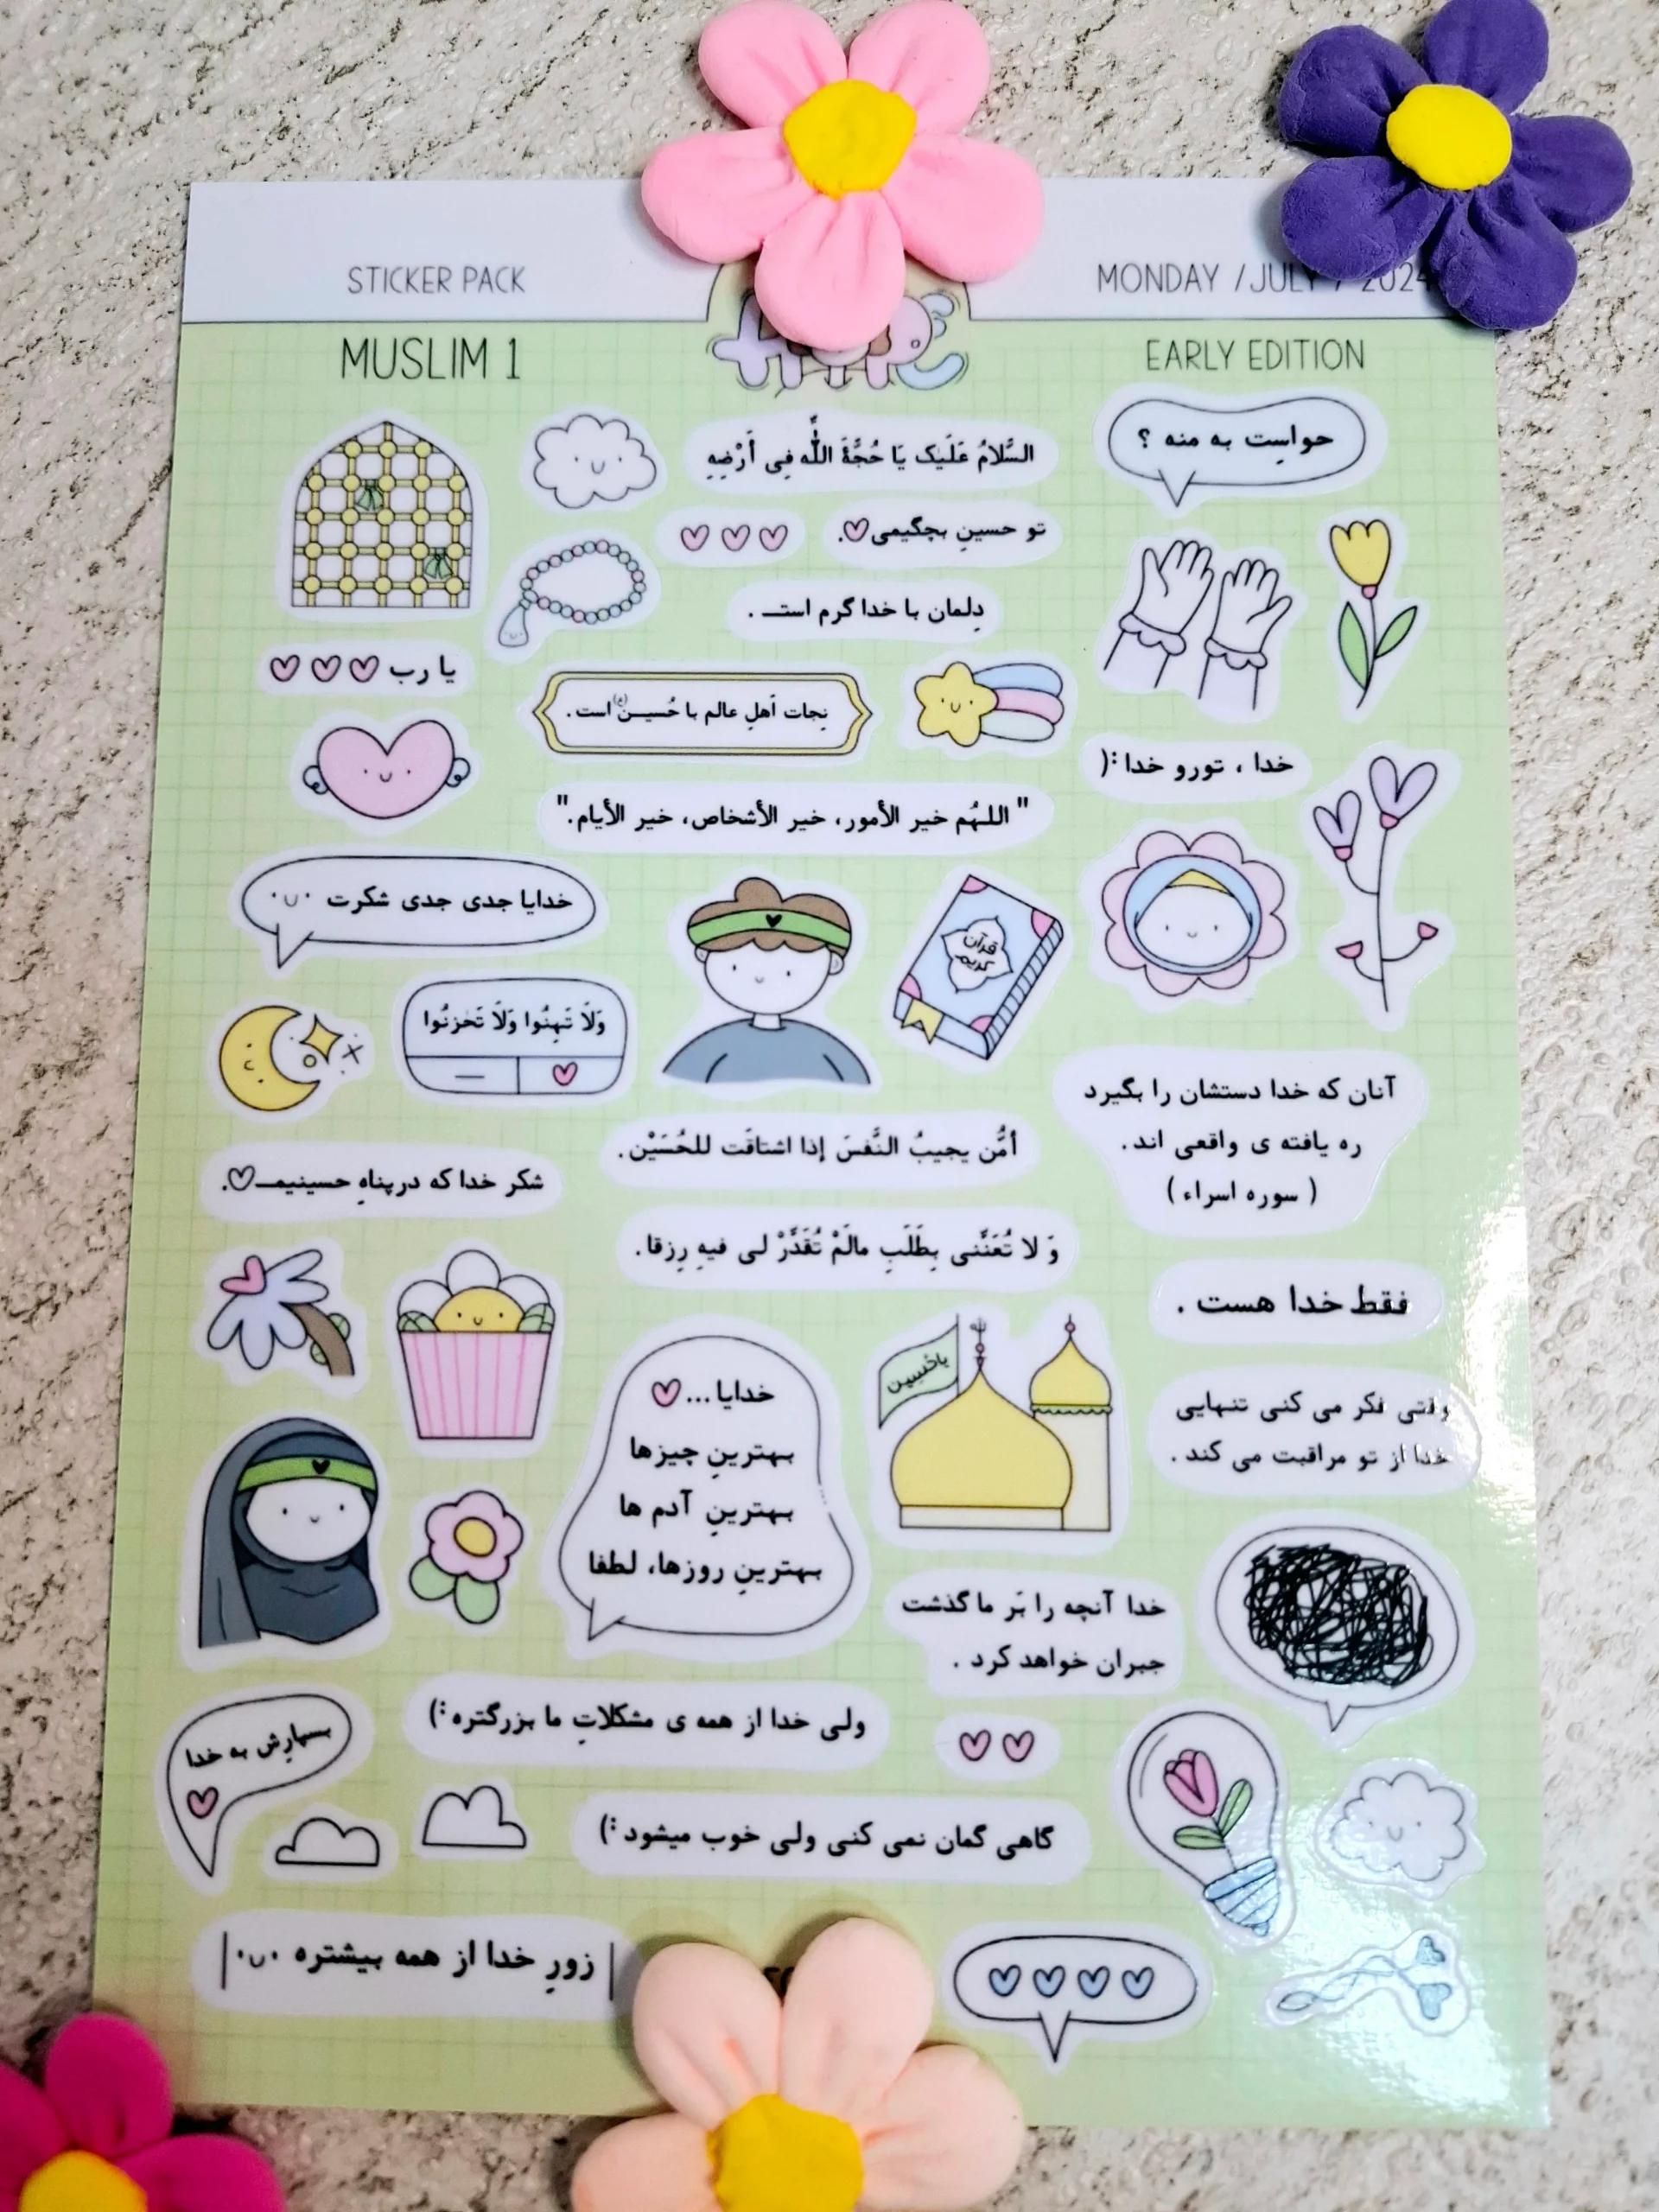 STICKER PACK
MONDAY / JULY / 2024
MUSLIM 1
EARLY EDITION
السَّلامُ عَلَیک یَا حُجَّةَ اللَّه فِی أَرْضِهِ
حواسِت به منه ؟
تو حسینِ بچگیمی♡.
دِلمان با خدا گرم استــ .
یا رب ♡♡♡
نِجات اَهلِ عالم با حُسیـــن(ع) است .
خدا ، تورو خدا :(
"اللهُم خیر الأمور، خیر الأشخاص، خیر الأیام."
خدایا جدی جدی شکرت ·ں·
قرآن
کریم
وَلَا تَهِنُوا وَلَا تَحْزَنُوا
آنان که خدا دستشان را بگیرد
ره یافته ی واقعی اند .
( سوره اسراء )
أمَّن یجیبُ النَّفسَ إذا اشتاقَت للحُسَیْن.
شکر خدا که در پناهِ حسینیمــ♡.
وَ لا تُعَنِّنی بِطَلَبِ مالَمْ تُقَدِّرْ لی فیهِ رِزقا.
فقط خدا هست .
یاحُسِین
خدایا...♡
بهترینِ چیزها
بهترینِ آدم ها
بهترینِ روزها، لطفا
وقتی فکر می کنی تنهایی
خدا از تو مراقبت می کند .
خدا آنچه را بَر ما گذشت
جبران خواهد کرد .
ولی خدا از همه ی مشکلاتِ ما بزرگتره :)
بسپارِش به خدا
♡
گاهی گمان نمی کنی ولی خوب میشود :)
| زورِ خدا از همه بیشتره ·ں· |